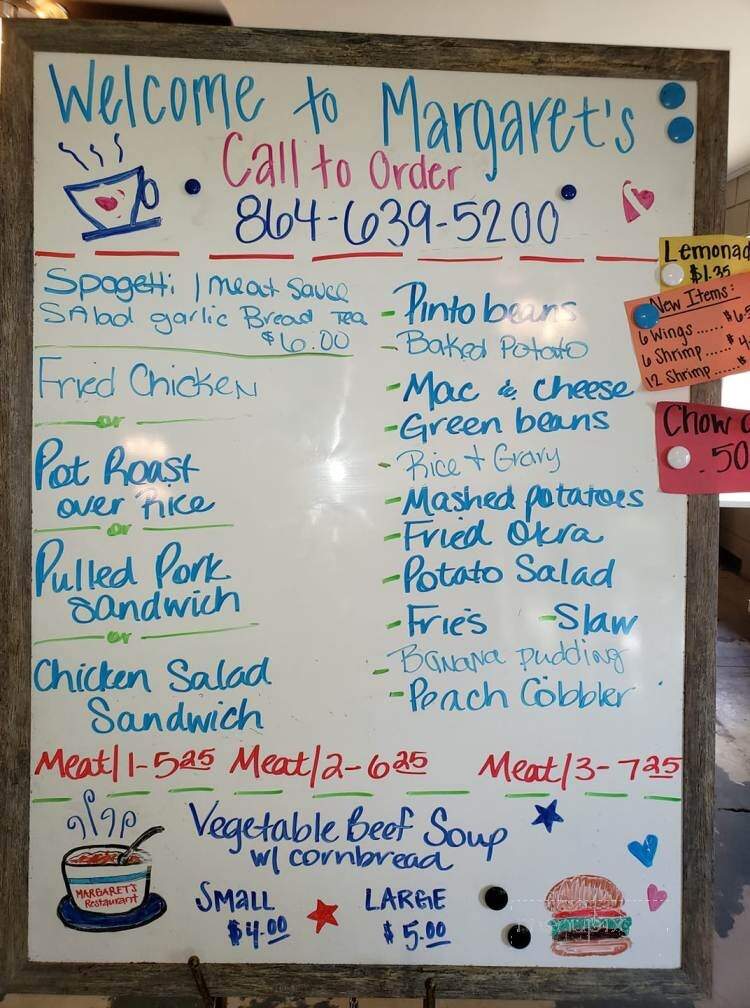 Welcome to Margaret's
Call to Order
864-639-5200
Spagetti / meat Sauce
SAlad garlic Bread Tea
$6.00
Fried Chicken
or
Pot Roast
over Rice
or
Pulled Pork
Sandwich
or
Chicken Salad
Sandwich
- Pinto beans
- Baked Potato
- Mac & Cheese
- Green beans
- Rice + Gravy
- Mashed potatoes
- Fried Okra
- Potato Salad
- Fries - Slaw
- Banana pudding
- Peach Cobbler
Meat/1-5 25 Meat/2-6 25 Meat/3-7 25
Vegetable Beef Soup
w/ cornbread
SMALL LARGE
$4.00 $5.00
MARGARET'S
Restaurant
Lemonad
$1.35
New Items:
6 Wings ......
6 Shrimp ......
12 Shrimp ......
Chow
.50